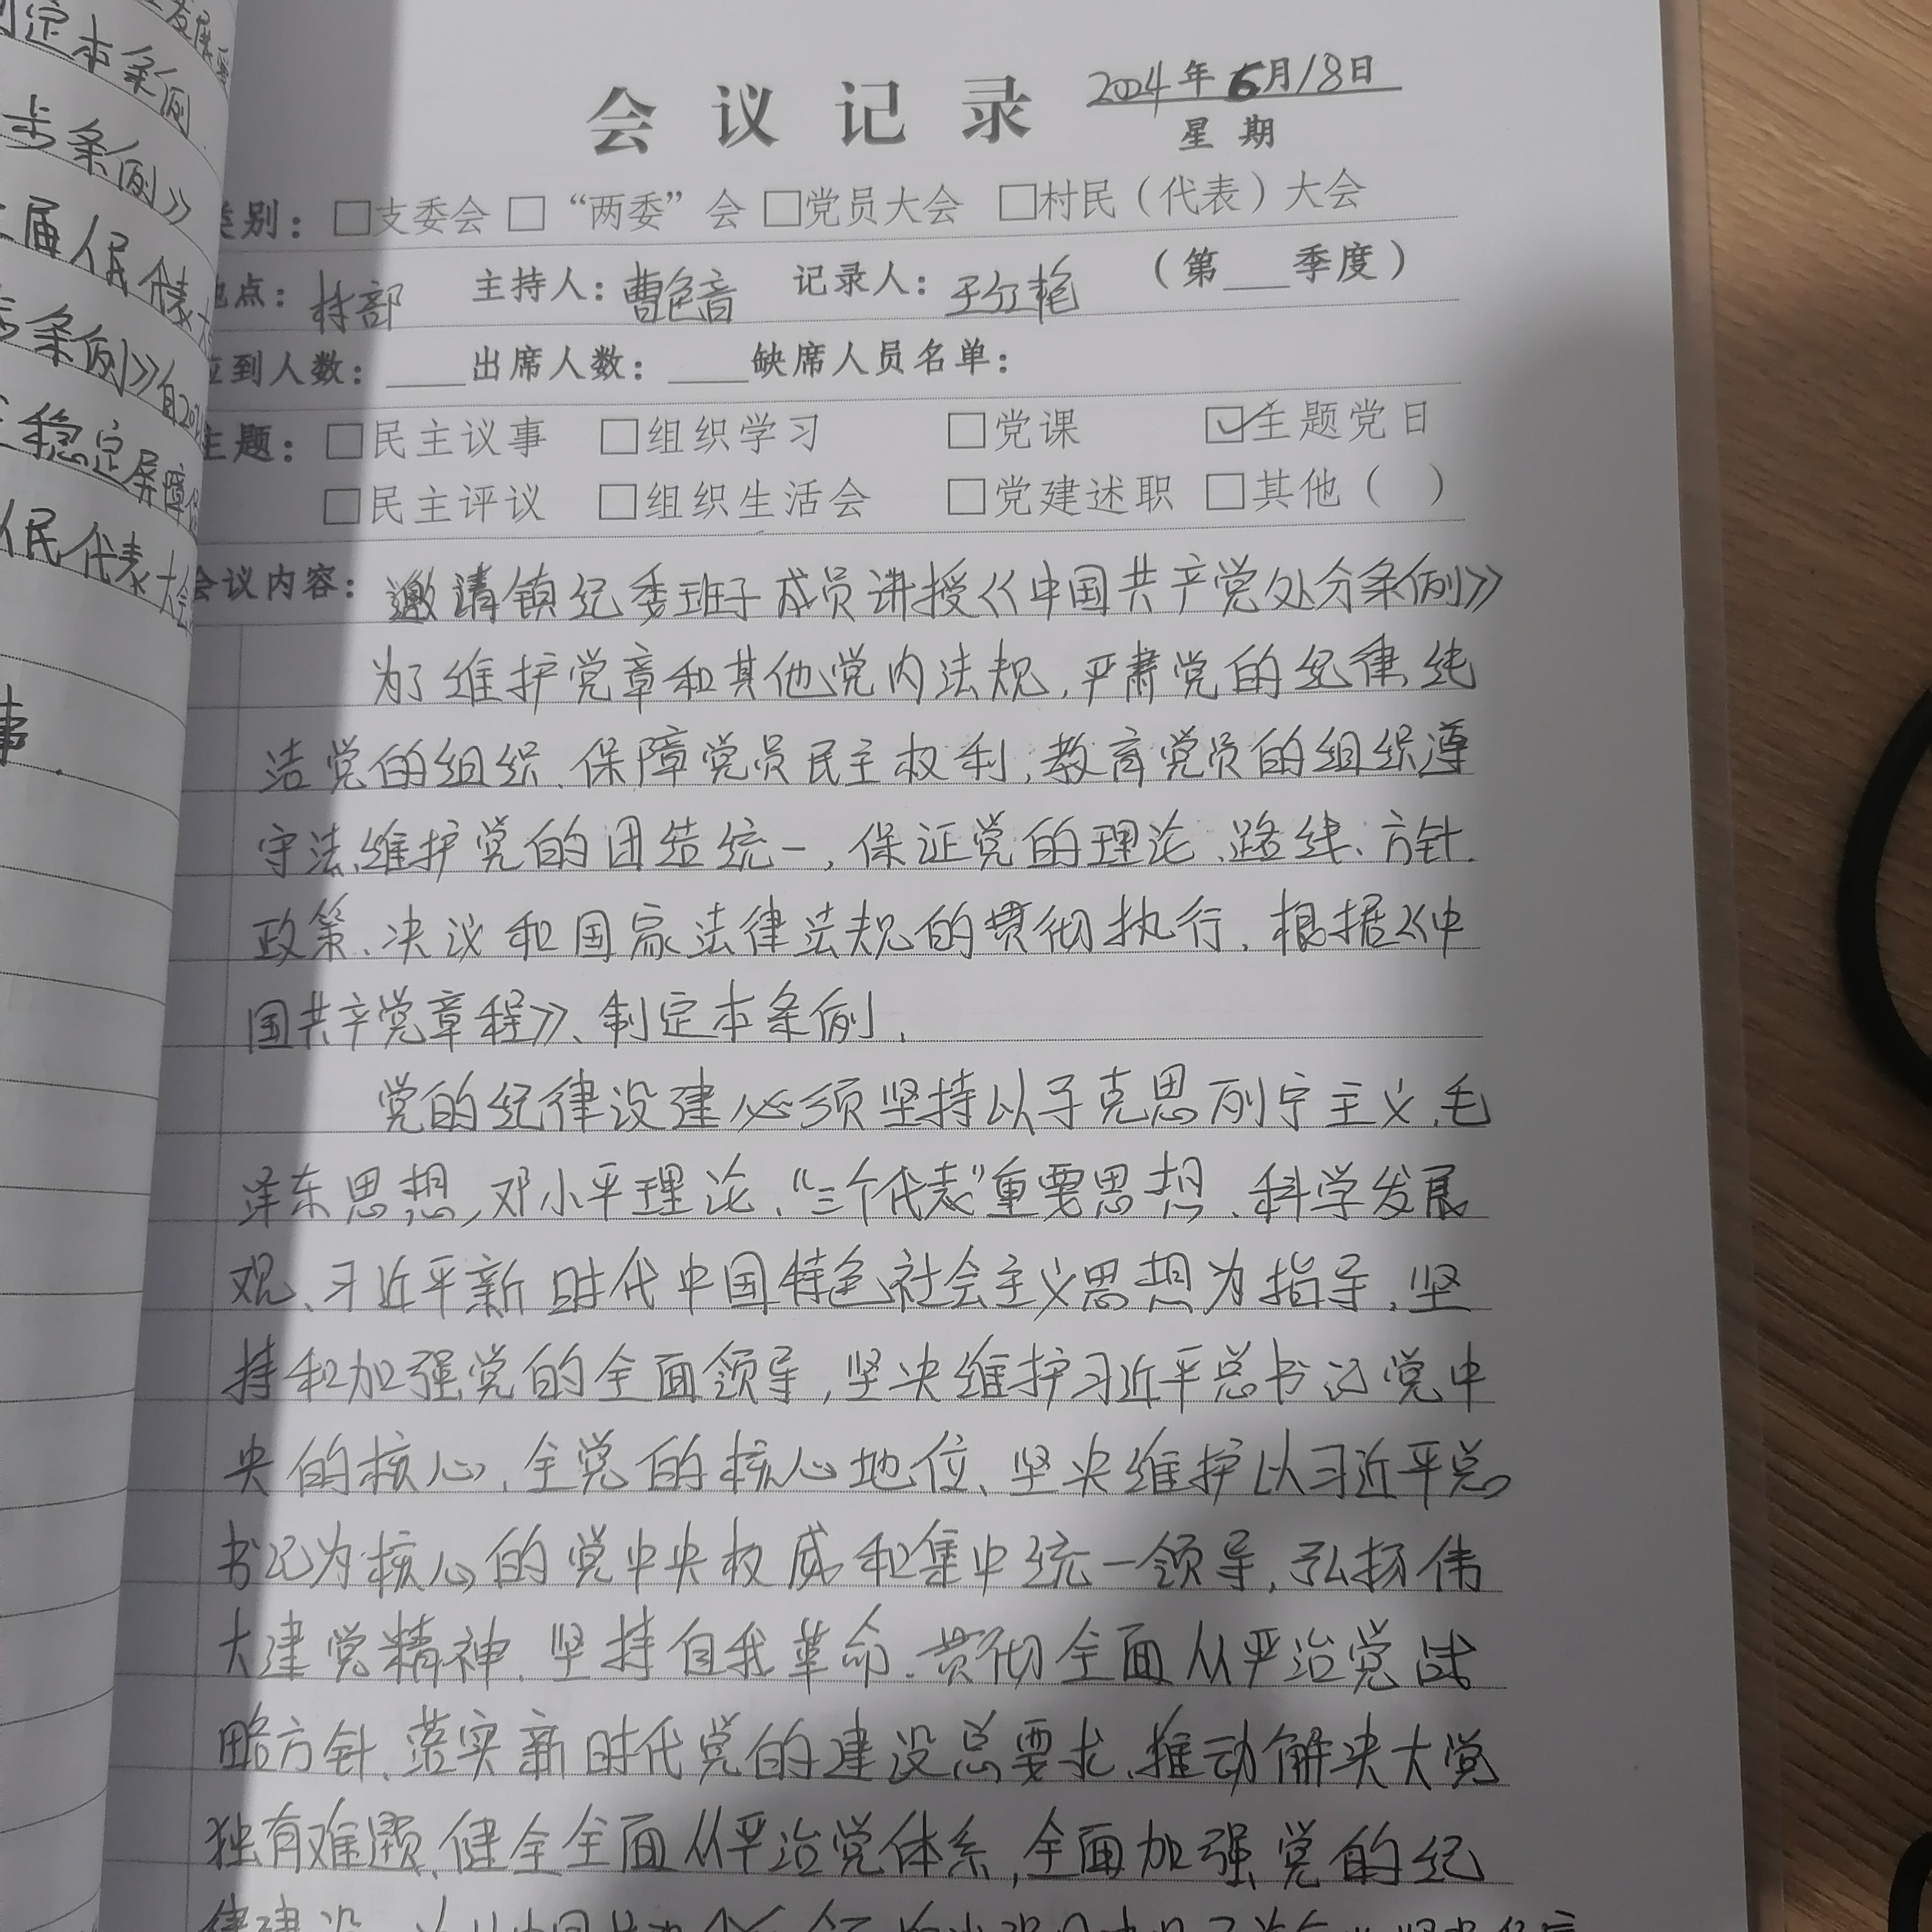 会议记录 2024年6月18日
星期
类别：□支委会 □“两委”会 □党员大会 □村民（代表）大会
地点：村部 主持人：曹 记录人： （第___季度）
应到人数：____出席人数：____缺席人员名单：
主题：□民主议事 □组织学习 □党课 ☑主题党日
□民主评议 □组织生活会 □党建述职 □其他（ ）
会议内容：邀请镇纪委班子成员讲授《中国共产党处分条例》
为了维护党章和其他党内法规，严肃党的纪律，纯
洁党的组织、保障党员民主权利，教育党员的组织遵
守法，维护党的团结统一，保证党的理论、路线、方针、
政策、决议和国家法律法规的贯彻执行，根据《中
国共产党章程》、制定本条例，
党的纪律设建必须坚持以于克思列宁主义，毛
泽东思想，邓小平理论、“三个代表”重要思想、科学发展
观、习近平新时代中国特色社会主义思想为指导，坚
持和加强党的全面领导，坚决维护习近平总书记党中
央的核心、全党的核心地位、坚决维护以习近平总
书记为核心的党中央权威和集中统一领导，弘扬伟
大建党精神、坚持自我革命、贯彻全面从严治党战
略方针、落实新时代党的建设总要求、推动解决大党
独有难题、健全全面从严治党体系，全面加强党的纪
律建设
定本条例
步条例》
届人民代表大
条例》自202
稳定屏障
人民代表大会
事.